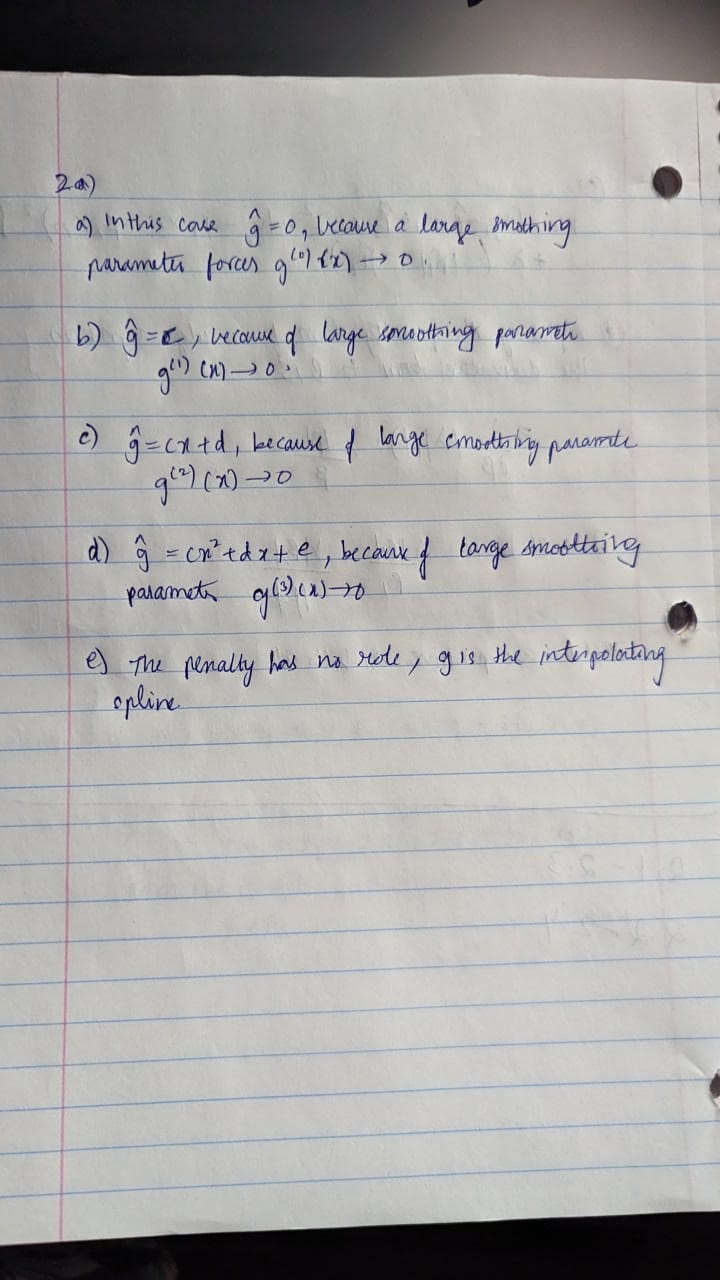 2a)
a) In this case ĝ = 0, because a large smothing
parameter forces g^(0)(x) → 0.
b) ĝ = c, because of large smoothing paramete
g^(1)(x) → 0.
c) ĝ = cx + d, because of large smoothing paramete
g^(2)(x) → 0
d) ĝ = cx² + dx + e, because of large smoothing
parameter g^(3)(x) → 0
e) The penalty has no role, g is the interpolating
spline